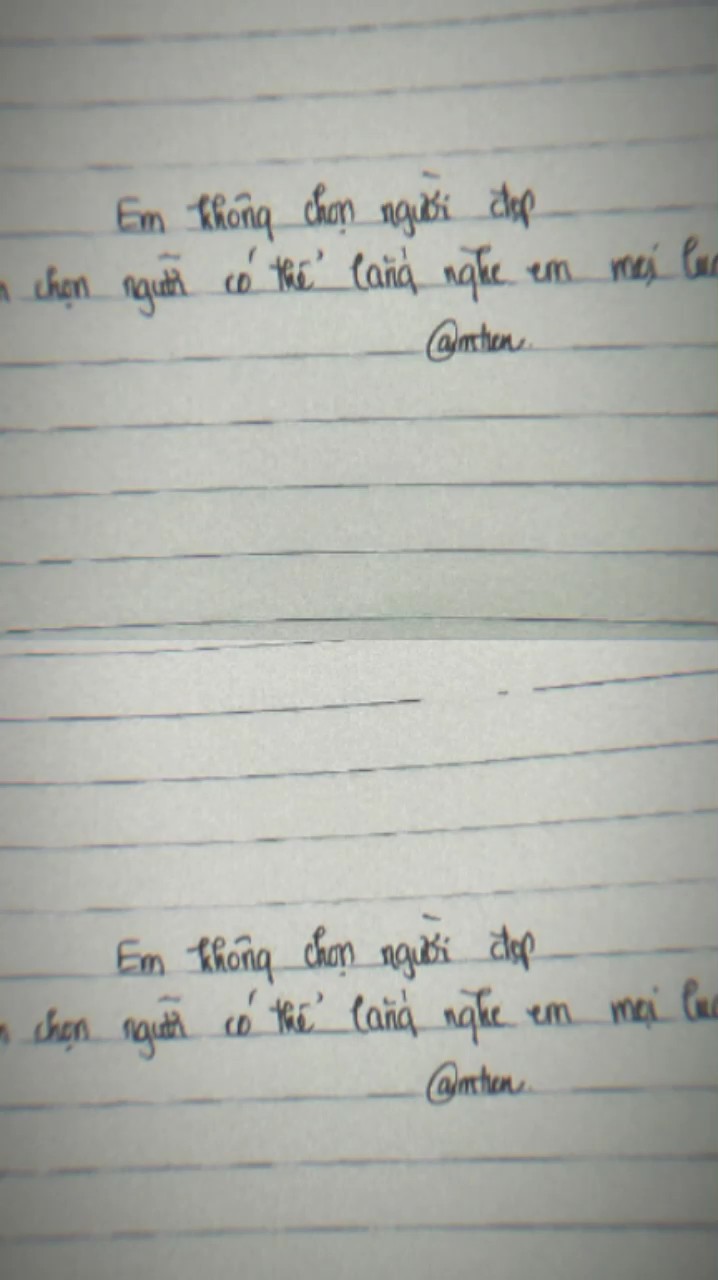 Em không chọn người đẹp
chọn người có thể lắng nghe em mọi
Em không chọn người đẹp
chọn người có thể lắng nghe em mọi